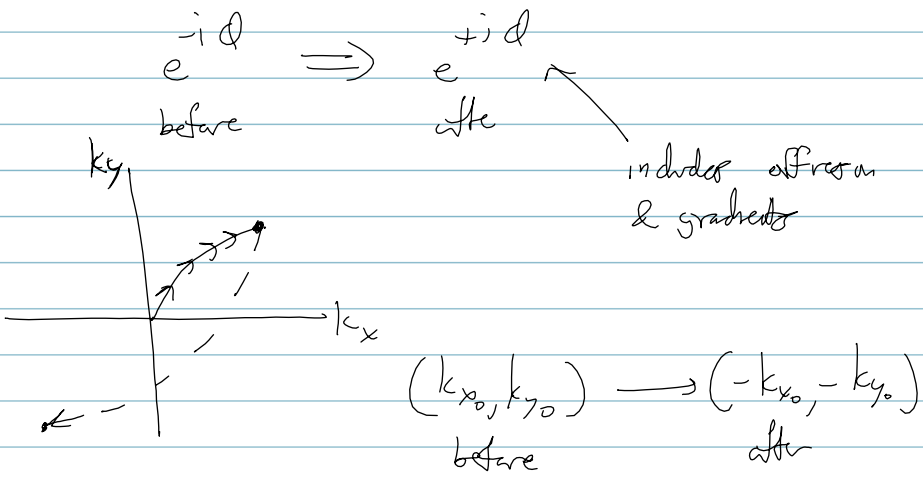 e^{-iφ} ⟹ e^{+iφ}
before afte
includes offreson
& gradients
ky
kx
(k_{x_0}, k_{y_0}) → (-k_{x_0}, -k_{y_0})
before after